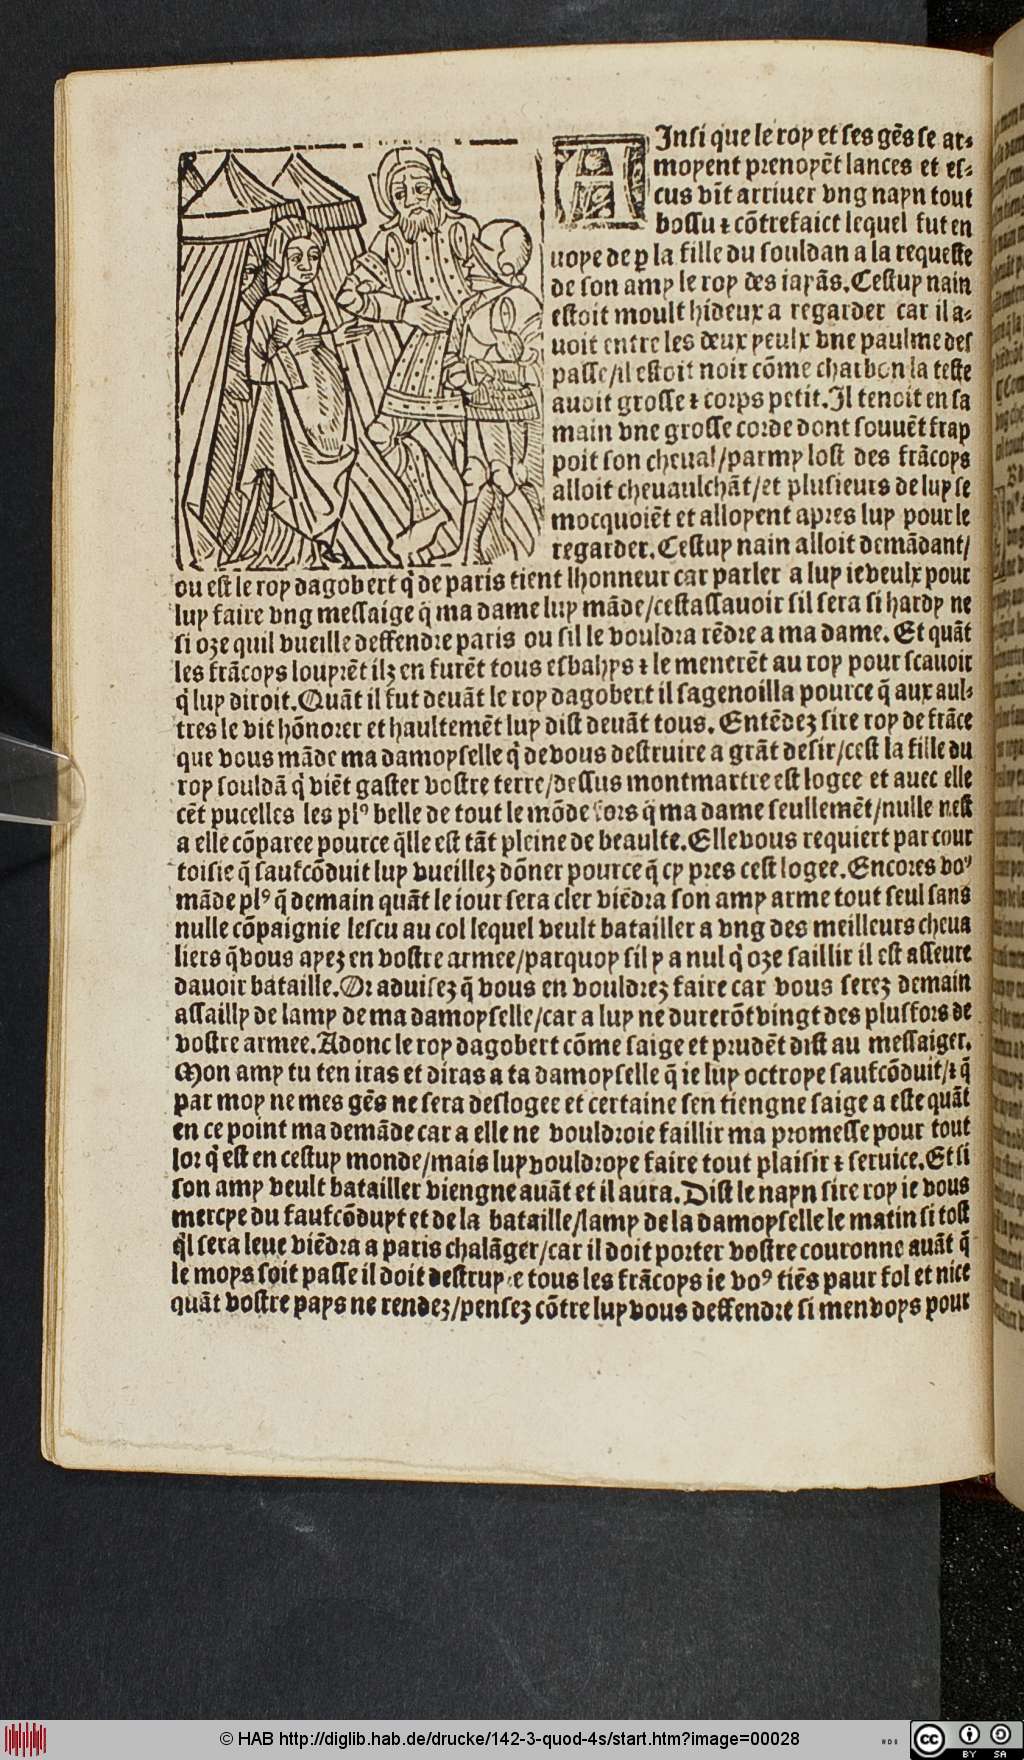 AInsi que le roy et ses gẽs se ar⸗
moyent prenoyẽt lances et es⸗
cus vĩt arriuer vng nayn tout
bossu ⁊ cõtrefaict lequel fut en
uoye de ꝑ la fille du souldan a la requeste
de son amy le roy des iayãs. Cestuy nain
estoit moult hideux a regarder car il a⸗
uoit entre les deux yeulx vne paulme des
passe/il estoit noir cõme charbon la teste
auoit grosse ⁊ corps petit. Il tenoit en sa
main vne grosse corde dont souuẽt frap
poit son cheual/parmy lost des frãcoys
alloit cheuaulchãt/et plusieurs de luy se
mocquoiẽt et alloyent apres luy pour le
regarder. Cestuy nain alloit demãdant/
ou est le roy dagobert q̃ de paris tient lhonneur car parler a luy ie veulx pour
luy faire vng messaige q̃ ma dame luy mãde/cestassauoir sil sera si hardy ne
si oze quil vueille deffendre paris ou sil le vouldra rẽdre a ma dame. Et quãt
les frãcoys louyrẽt ilz en furẽt tous esbahys ⁊ le menerẽt au roy pour scauoir
q̃ luy diroit. Quãt il fut deuãt le roy dagobert il sagenoilla pource q̃ aux aul⸗
tres le vit hõnorer et haultemẽt luy dist deuãt tous. Entẽdez sire roy de frãce
que vous mãde ma damoyselle q̃ de vous destruire a grãt desir/cest la fille du
roy souldã q̃ viẽt gaster vostre terre/dessus montmartre est logee et auec elle
cẽt pucelles les plꝰ belle de tout le mõde fors q̃ ma dame seullemẽt/nulle nest
a elle cõparee pource q̃lle est tãt pleine de beaulte. Elle vous requiert par cour
toisie q̃ saufcõduit luy vueillez dõner pource q̃ cy pres cest logee. Encores voꝰ
mãde plꝰ q̃ demain quãt le iour sera cler viẽdra son amy arme tout seul sans
nulle cõpaignie lescu au col lequel veult batailler a vng des meilleurs cheua
liers q̃ vous ayez en vostre armee/parquoy sil y a nul q̃ oze saillir il est asseure
dauoir bataille. Or aduisez q̃ vous en vouldrez faire car vous serez demain
assailly de lamy de ma damoyselle/car a luy ne durerõt vingt des plus fors de
vostre armee. Adonc le roy dagobert cõme saige et prudẽt dist au messaiger.
Mon amy tu ten iras et diras a ta damoyselle q̃ ie luy octroye saufcõduit/⁊ q̃
par moy ne mes gẽs ne sera deslogee et certaine sen tiengne saige a este quãt
en ce point ma demãde car a elle ne vouldroie faillir ma promesse pour tout
lor q̃ est en cestuy monde/mais luy vouldroye faire tout plaisir ⁊ seruice. Et si
son amy veult batailler viengne auãt et il aura. Dist le nayn sire roy ie vous
mercye du faufcõduyt et de la bataille/lamy de la damoyselle le matin si tost
q̃l sera leue viẽdra a paris chalãger/car il doit porter vostre couronne auãt q̃
le moys soit passe il doit destruyre tous les frãcoys ie voꝰ tiẽs paur fol et nice
quãt vostre pays ne rendez/pensez cõtre luy vous deffendre si men voys pour
© HAB http://diglib.hab.de/drucke/142-3-quod-4s/start.htm?image=00028
cc BY SA